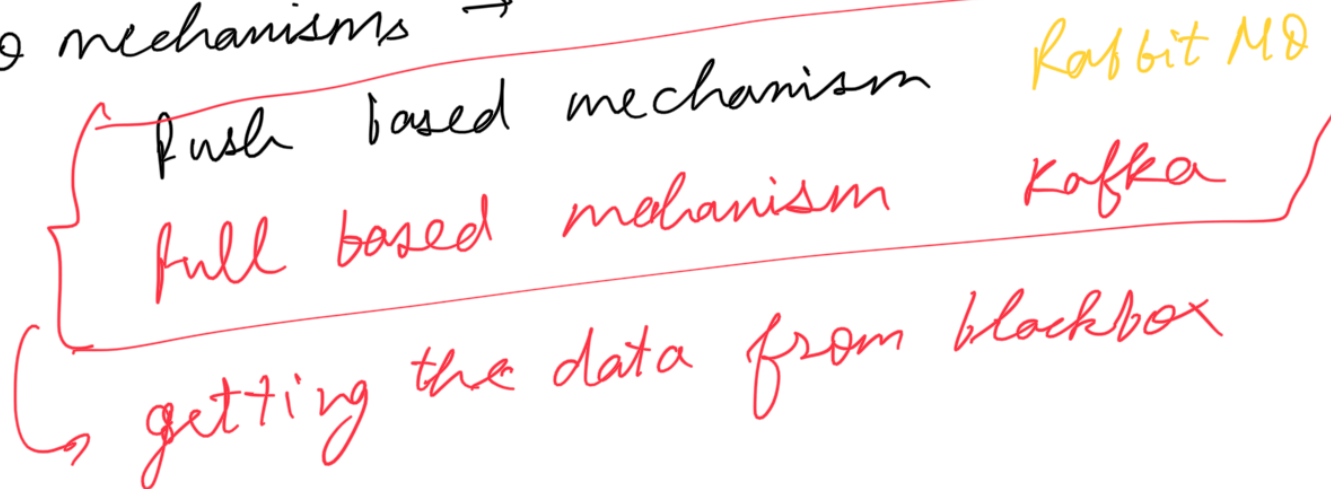 mechanisms →
Push based mechanism Rabbit MQ
Pull based mehanism Kafka
getting the data from blackbox